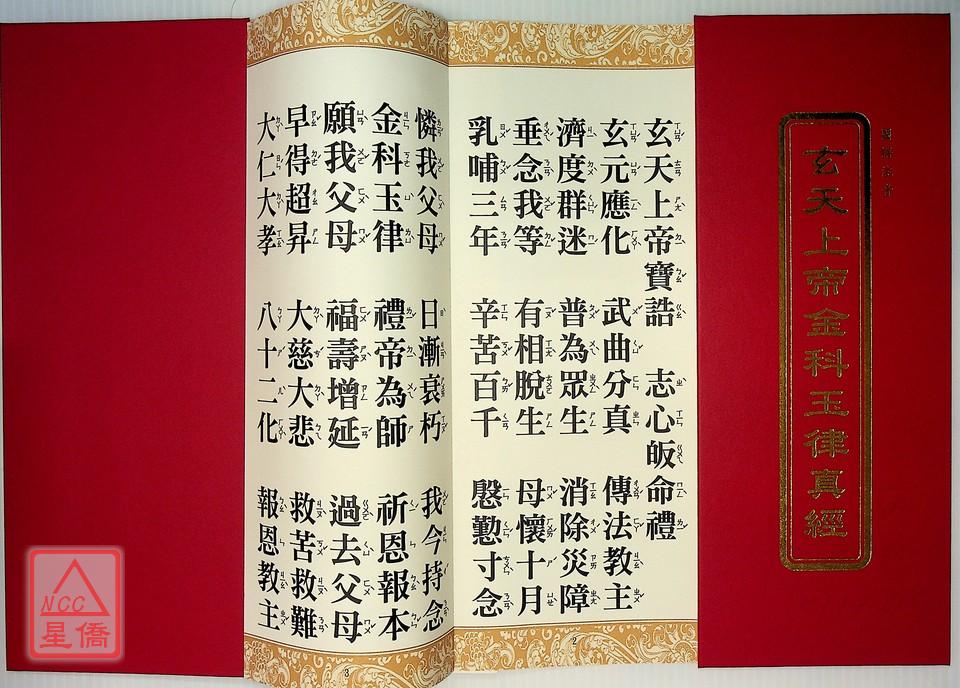 玄天上帝金科玉律真經
玄天上帝寶誥 志心皈命禮
玄元應化 武曲分真 傳法教主
濟度群迷 普為眾生 消除災障
垂念我等 有相脫生 母懷十月
乳哺三年 辛苦百千 慇懃寸念
2
憐我父母 日漸衰朽 我今持念
金科玉律 禮帝為師 祈恩報本
願我父母 福壽增延 過去父母
早得超昇 大慈大悲 救苦救難
大仁大孝 八十二化 報恩教主
3
NCC
星僑